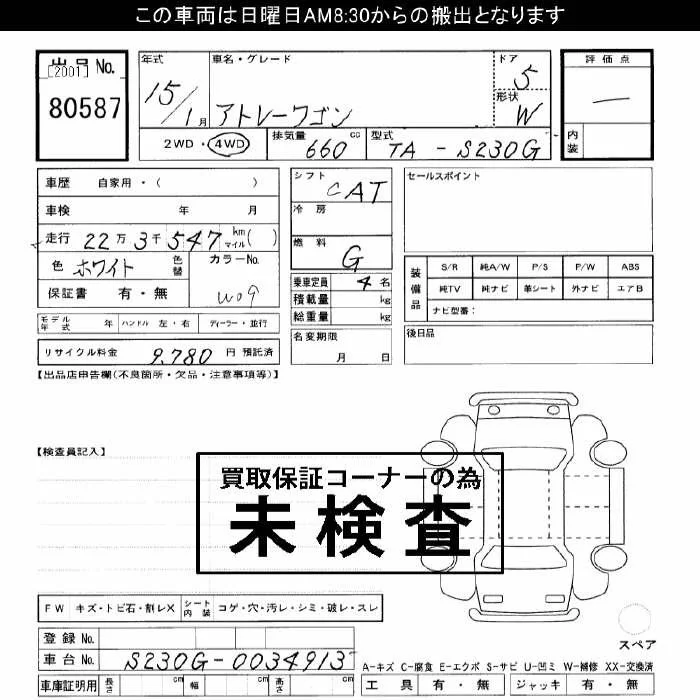 この車両は日曜日AM8:30からの搬出となります
出品 No.
[2001]
80587
年式
15/1月
車名・グレード
アトレーワゴン
ドア
5
形状
W
評価点
―
内装
2WD・4WD
排気量 660 cc
型式 TA-S230G
車歴 自家用・( )
車検 年 月
走行 22万3千547 km マイル( )
色 ホワイト 色替
カラーNo. W09
保証書 有・無
シフト CAT
冷房
燃料 G
乗車定員 4名
積載量 kg
総重量 kg
セールスポイント
装備品
S/R 純A/W P/S P/W ABS
純TV 純ナビ 革シート 外ナビ エアB
ナビ型番:
モデル年式 年 ハンドル 左・右 ディーラー・並行
リサイクル料金 9,780 円 預託済
名変期限
月 日
後日品
【出品店申告欄(不良箇所・欠品・注意事項等)】
【検査員記入】
買取保証コーナーの為
未検査
FW キズ・トビ石・割レX シート内装 コゲ・穴・汚レ・シミ・破レ・スレ
スペア
登録 No.
車台 No. S230G-0034913
A-キズ C-腐食 E-エクボ S-サビ U-凹ミ W-補修 XX-交換済
車庫証明用 長さ cm 幅 cm 高さ cm
工具 有・無 ジャッキ 有・無